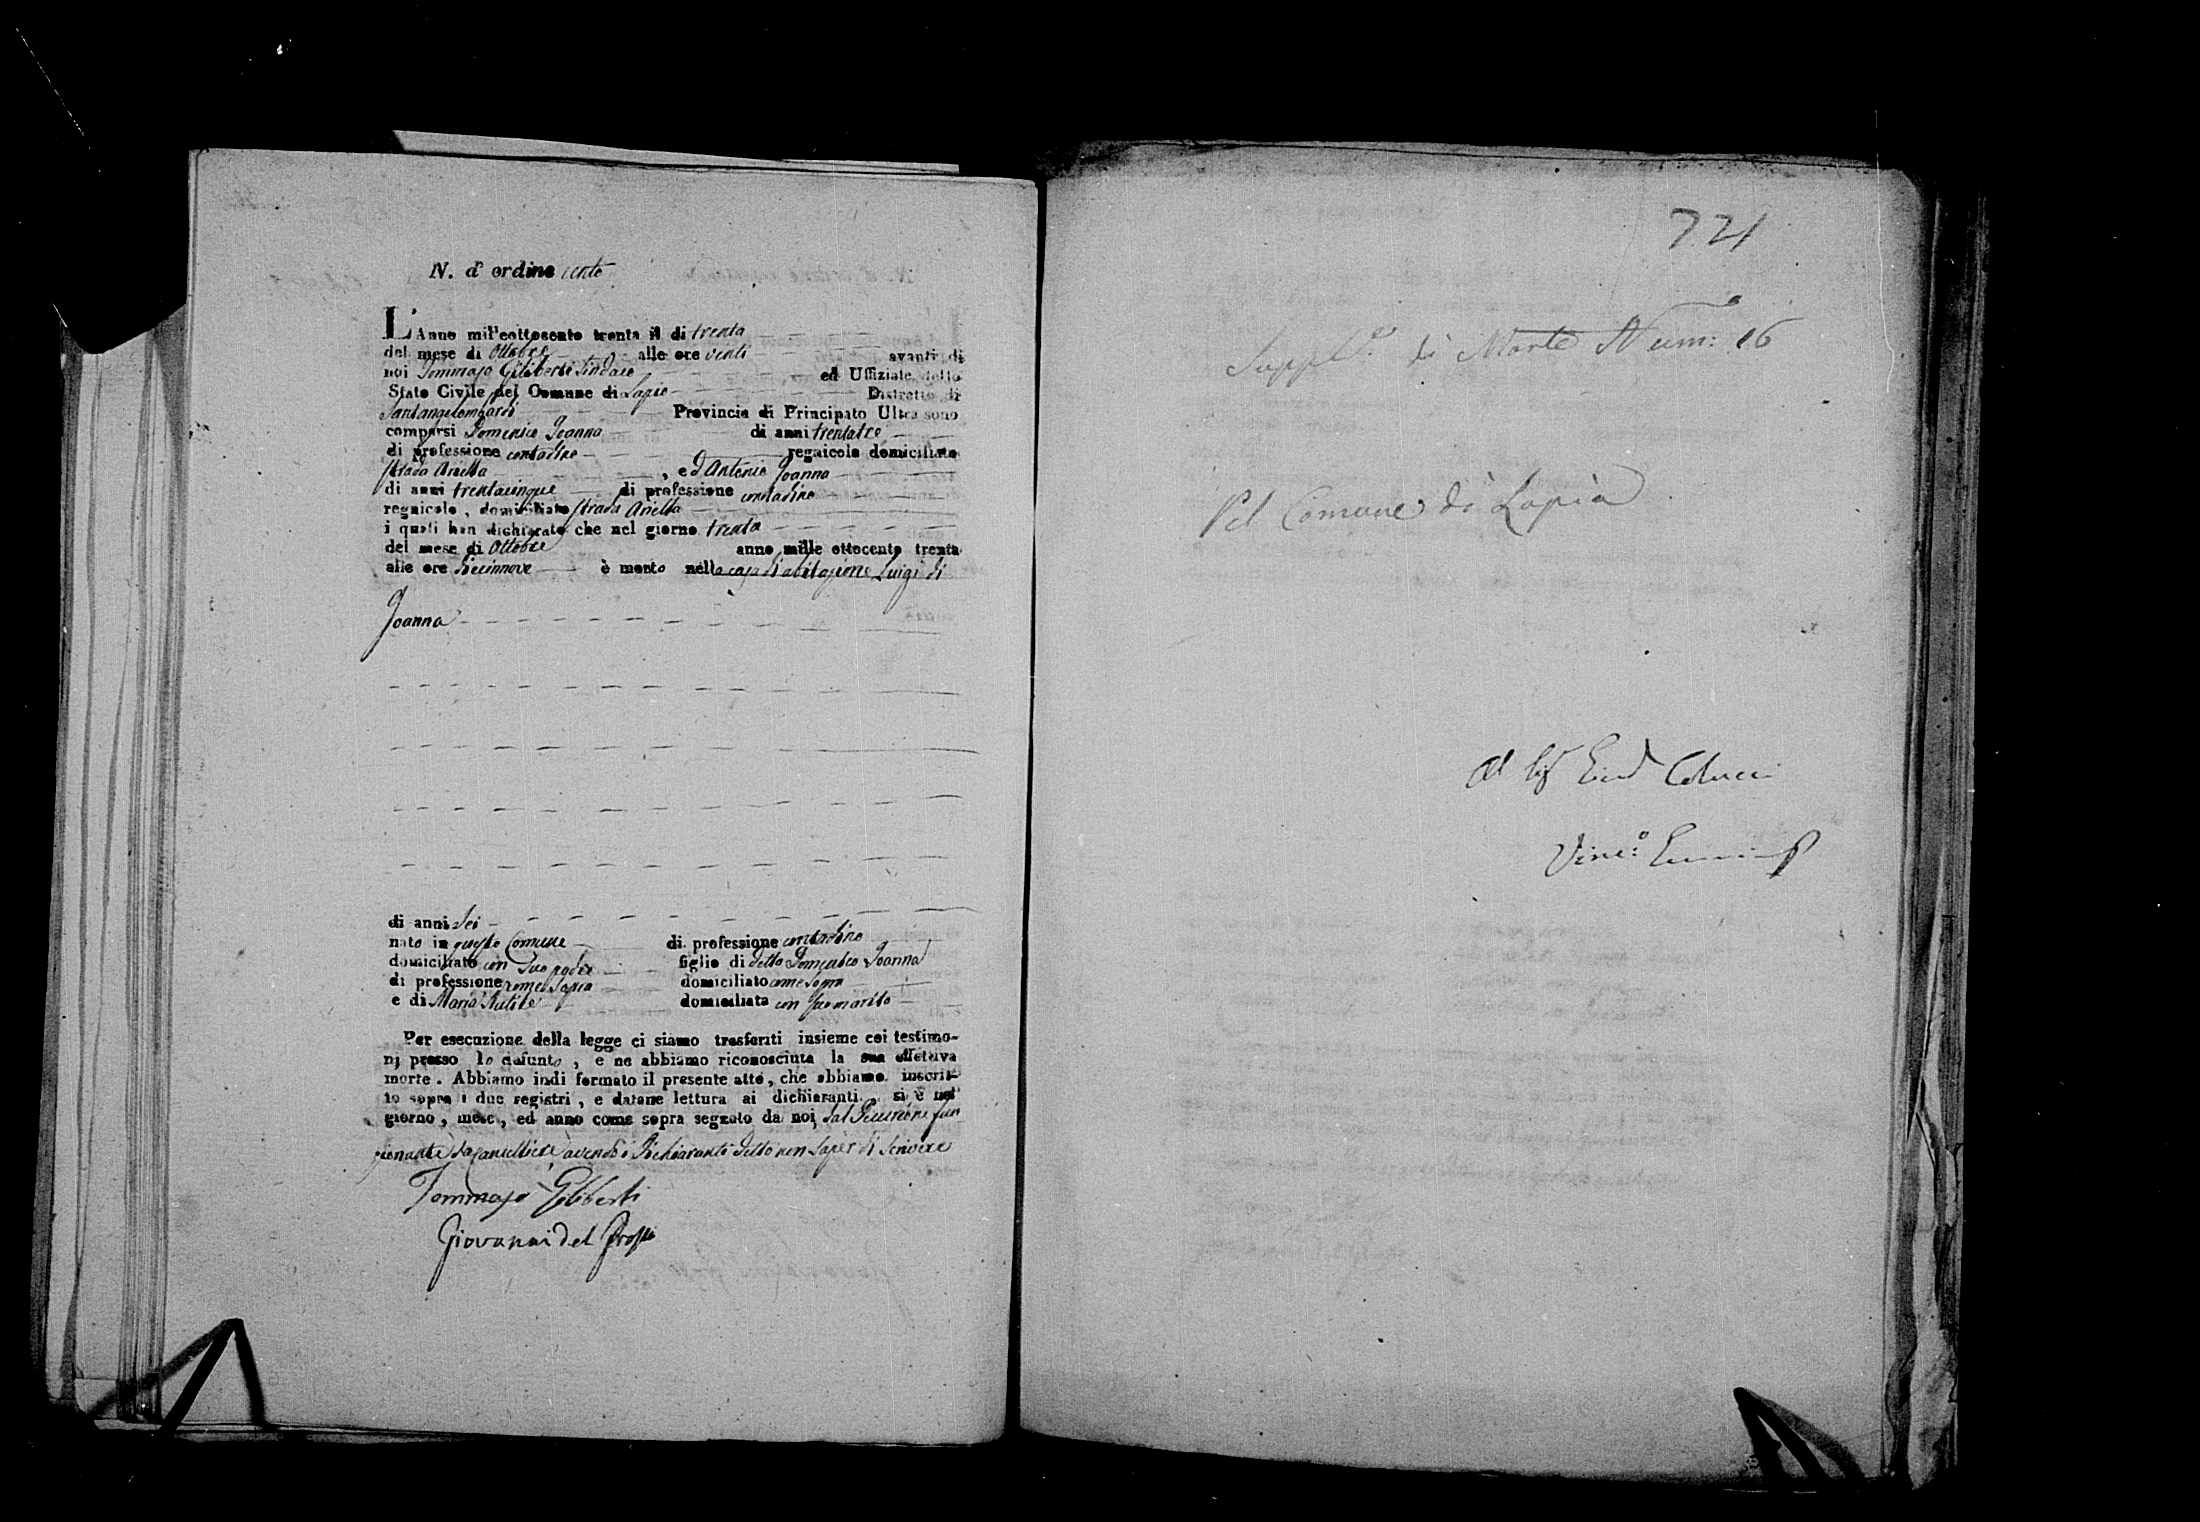 N. d' ordine cento
L'Anno mill'eottocento trenta il di trenta
del mese di Ottobre alle ore venti avanti di
noi Tommaso Giliberti Sindaco ed Uffiziale dello
Stato Civile del Comune di Lapio Distretto di
Santangelombardi Provincia di Principato Ultra sono
comparsi Domenico Joanna di anni trentatre
di professione contadino regnicolo domiciliato
strada Ariella, ed Antonio Joanna
di anni trentacinque di professione contadino
regnicolo, domiciliato strada Ariella
i quali han dichiarato che nel giorno trenta
del mese di Ottobre anno mille ottocento trenta
alle ore diecinnove è morto nella casa d'abitazione Luigi di
Joanna
di anni sei
nato in questo Comune di professione contadino
domiciliato con suo padre figlio di detto Domenico Joanna
di professione come sopra domiciliato come sopra
e di Maria domiciliata con suo marito
Per esecuzione della legge ci siamo trasferiti insieme coi testimo-
nj presso lo defunto, e ne abbiamo riconosciuta la sua effettiva
morte. Abbiamo indi formato il presente atto, che abbiamo inscrit-
to sopra i due registri, e datane lettura ai dichiaranti si è nel
giorno, mese, ed anno come sopra segnato da noi, dal Decurione fun
zionante da Cancelliere avendo i Dichiaranti detto non saper di scrivere
Tommaso Giliberti
Giovanni del Grosso
721
di Morte Num: 16
Pel Comune di Lapia
Al Colucci